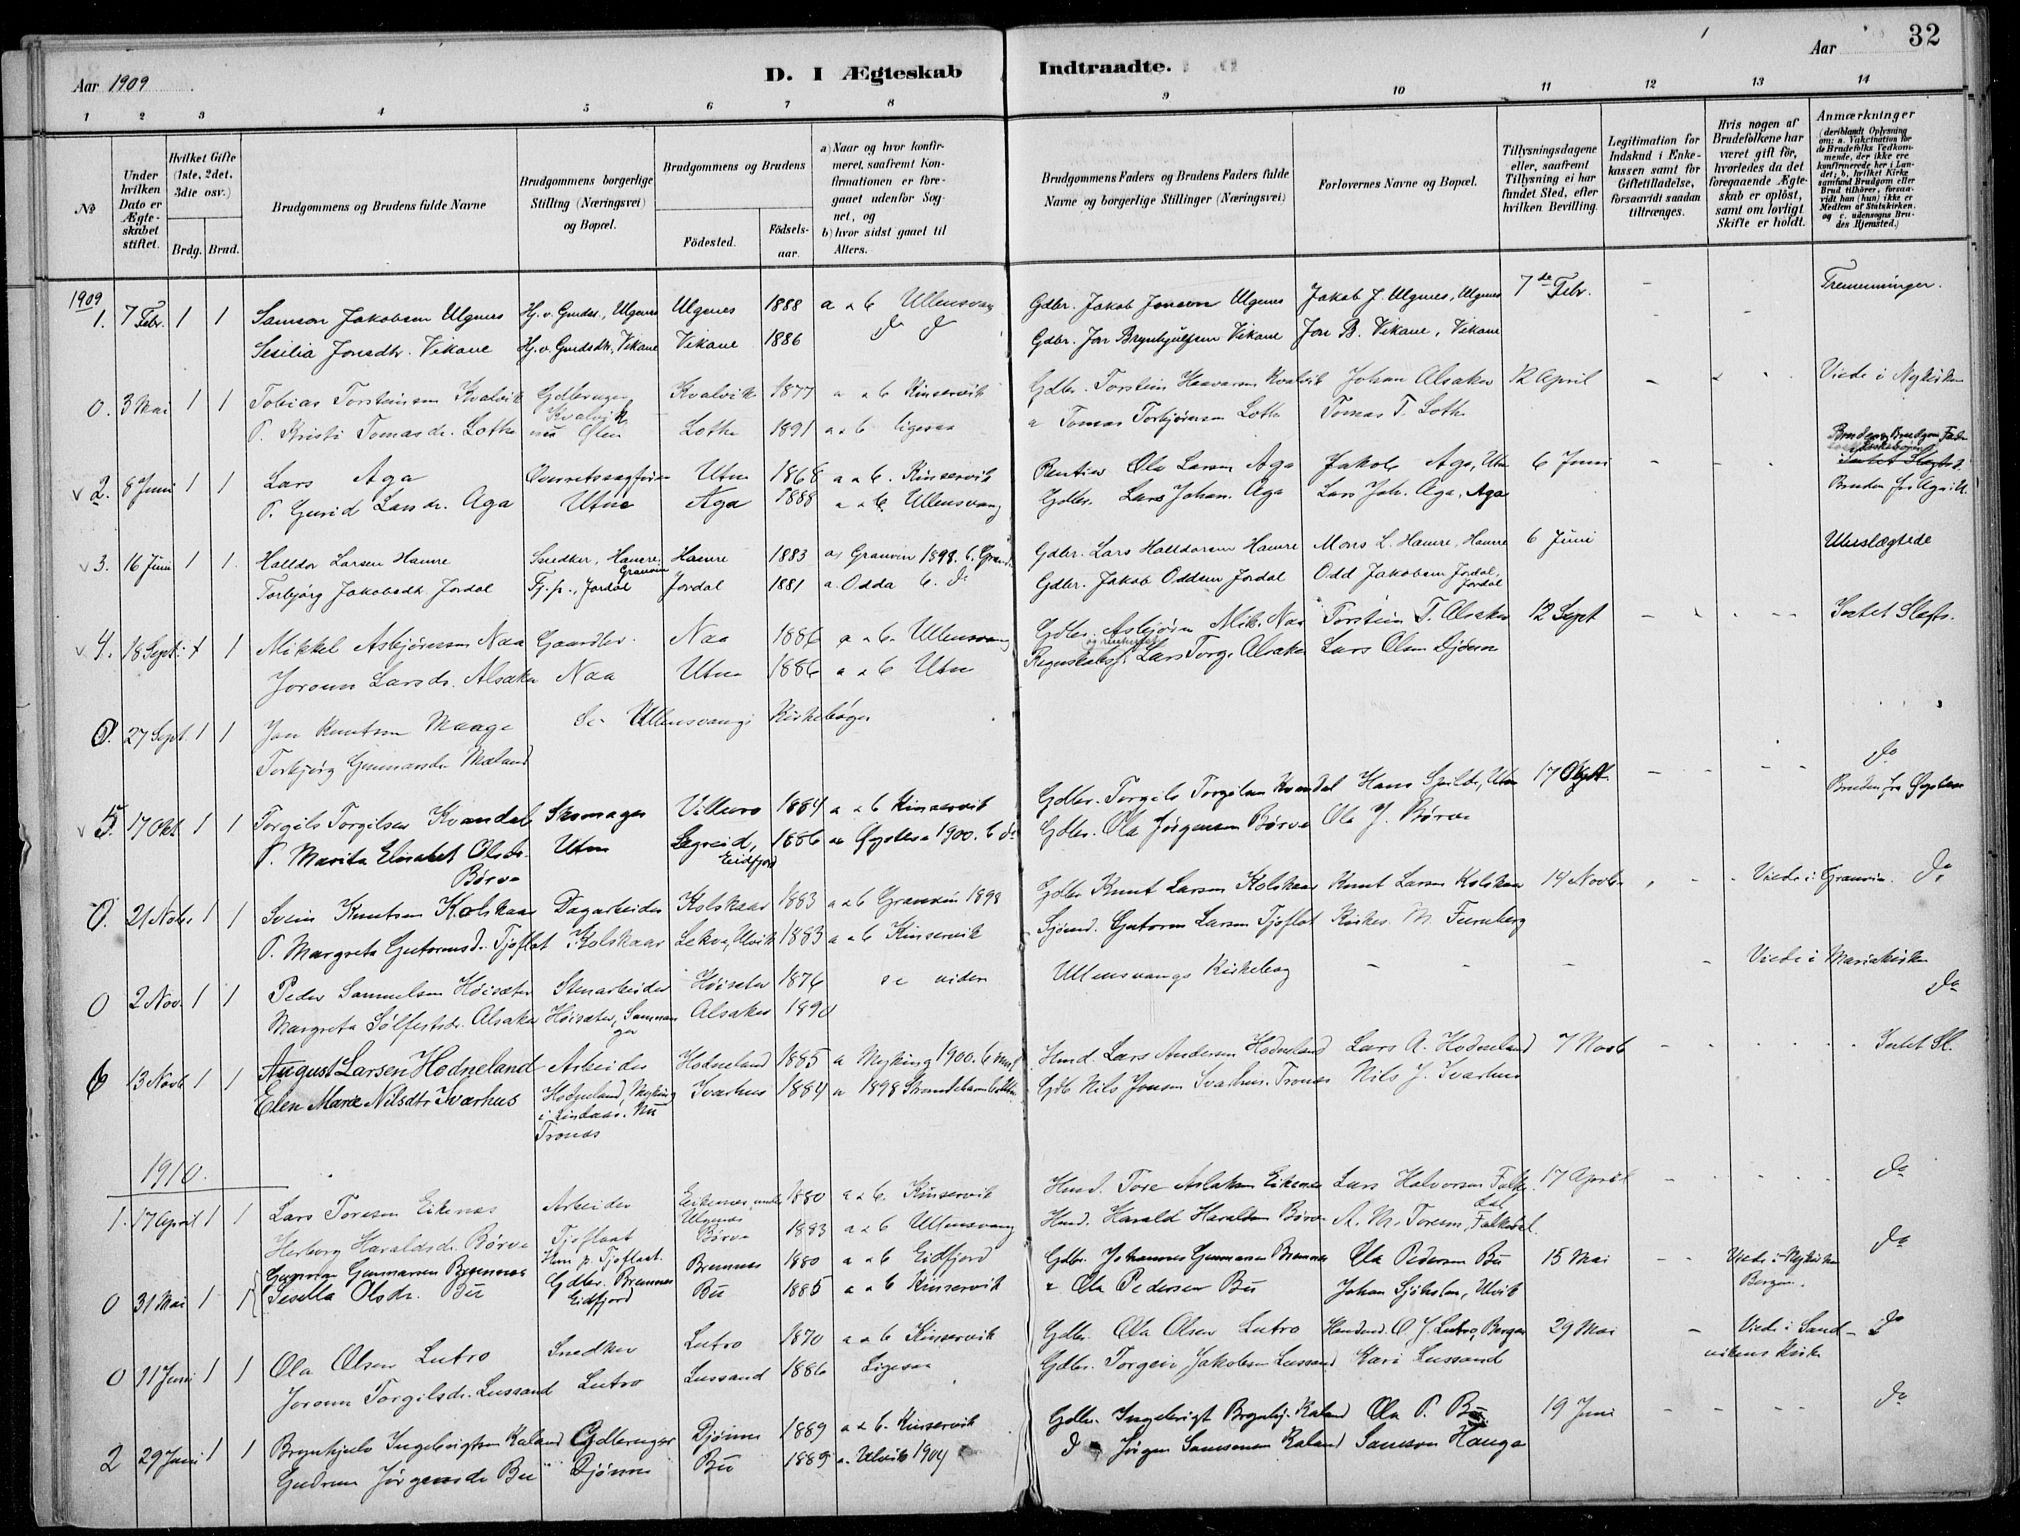 Aar 1909
D. I Ægteskab Indtraadte.
Aar
32
1 2 3 4 5 6 7 8 9 10 11 12 13 14
№
Under hvilken Dato er Ægteskabet stiftet.
Hvilket Gifte (1ste, 2det, 3die osv.)
Brdg. Brud.
Brudgommens og Brudens fulde Navne
Brudgommens borgerlige Stilling (Næringsvei) og Bopæl.
Brudgommens og Brudens
Födested. Födselsaar.
a) Naar og hvor konfirmeret, saafremt Konfirmationen er foregaaet udenfor Sognet, og
b) hvor sidst gaaet til Alters.
Brudgommens Faders og Brudens Faders fulde Navne og borgerlige Stillinger (Næringsvei)
Forlovernes Navne og Bopæl.
Tillysningsdagene eller, saafremt Tillysning ei har fundet Sted, efter hvilken Bevilling.
Legitimation for Indskud i Enkekassen samt for Giftetilladelse, forsaavidt saadan tiltrænges.
Hvis nogen af Brudefolkene har været gift för, hvorledes da det foregaaende Ægteskab er oplöst, samt om lovligt Skifte er holdt.
Anmærkninger
(deriblandt Oplysning om: a. Vakcination for de Brudefolks Vedkommende, der ikke ere konfirmerede her i Landet; b. hvilket Kirkesamfund Brudgom eller Brud tilhörer, forsaavidt han (hun) ikke er Medlem af Statskirken, og c. udensogns Brudes Hjemsted.)
1909
1. 7 Febr. 1 1 Samson Jakobsen Ulgenes Hj.v. Gmds., Ulgenes Ulgenes 1888 a & b Ullensvang Gdbr. Jakob Jonsen Ulgenes Jakob J. Ulgenes, Ulgenes 7de Febr. - - - Tremenninger.
Sesilia Jonsdtr. Vikane Hj.v. Gmdsdtr., Vikane Vikane 1886 do do Gdbr. Jon Brynhjulfsen Vikane Jon B. Vikane, Vikane
0. 3 Mai 1 1 Tobias Torsteinsen Kvalvik Gdbruger Kvalvik 1877 a & b Kinservik Gdbr. Torstein Haavarsen Kvalvik Johan Alsaker 12 April - - - Viede i Nykirken
P. Kristi Tomasdr. Lothe Kvalvik Lothe 1891 a & b ligesaa Tomas Torbjørnsen Lothe Tomas T. Lothe
2. 8 Juni 1 1 Lars Aga Overretssagfører Utne 1868 a & b. Kinservik Rentier Ola Larsen Aga Jakob Aga, Utne 6 Juni - -
P. Gurid Larsdr. Aga Utne Aga 1888 a & b Ullensvang Gdbr. Lars Johan. Aga Lars Joh. Aga, Aga Bruden fra Aga i U.
3. 16 Juni 1 1. Halldor Larsen Hamre Snedker, Hamre, Granvin Hamre 1883 a) Granvin 1898. b. Granv. Gdbr. Lars Halldorsen Hamre Mons L. Hamre, Hamre 6 Juni Ubeslægtede
Torbjørg Jakobsdtr. Jordal Tj.p., Jordal Jordal 1881 a. Odda b. do Gdbr. Jakob Oddsen Jordal Odd Jakobsen Jordal, Jordal
4. 18 Sept. 1 1 Mikkel Asbjørnsen Naa Gaardbr. Naa 1886 a & b Ullensvang Gdbr. Asbjørn Mik. Naa Torstein T. Alsaker 12 Sept - - - Intet Slegts.
Joronn Larsdr. Alsaker Naa Utne 1886 a & b Utne Lars Torg. Alsaker Lars Olsen Djønne
0. 27 Sept. 1 1 Jon Knutsen Maage Se Ullensvangs Kirkebøger
Torbjørg Gunnarsdr. Mæland
5. 17 Okt 1 1 Torgils Torgilsen Kvandal Skomager Villuro 1884 a & b Kinservik Gdbr. Torgils Torgilsen Kvandal Hans Spilde, Utne 17 - - - do
P. Marita Elisabet Olsdr. Børve Utne Legreid, Eidfjord 1886 a Øystese 1900. b do Gdbr. Ola Jørgensen Børve Ola J. Børve Bruden fra Øystese
0. 21 Nobr 1 1 Svein Knutsen Kolskaar Dagarbeider Kolskaar 1883 a & b Granvin 1898 Gdbr Knut Larsen Kolskaar Knut Larsen Kolskaar 14 Novb. Viede i Granvin. do
P. Margreta Gutormsd. Tjoflot Kolskaar Lekve, Ulvik 1883 a & b Kinservik Gutorm Larsen Tjoflot M. Furuberg
0 2 Nov. 1 1 Peder Samuelsen Høisæter Stenarbeider Høisæter 1876 se videre Ullensvangs Kirkebog - - - Viede i Mariakirken
Margreta Sølfestsdr. Alsaker Høisæter, Samnanger Alsaker 1890 do
6 13 Novb 1 1 August Larsen Hodneland Arbeider Hodneland 1885 a Myking 1900. b Lars Andersen Hodneland Lars A. Hodneland 7 Novb Intet Sl.
Elen Marie Nilsdtr Ivarhus Hodneland, Myking i Lindaas. Nu Tronæs Ivarhus 1884 a 1898 Strandebarm Gdb Nils Jonsen Ivarhus. Tronæs Nils J. Ivarhus
1910.
1. 17 April 1 1 Lars Toresen Eikenæs Arbeider Eikenæs under Ulgenæs 1880 a & b. Kinservik Husd. Tore Aslaksen Eikenæs Lars Halvorsen Falkedal 17 April do
Herborg Haraldsdr. Børve Tjoflaat Børve 1883 a & b Ullensvang Husd. Harald Haraldsen Børve A. M. Toresen, Falkedal
0 31 Mai 1 1 Gunnar Gunnarsen Bremnes Gdbr. Bremnes Bremnes 1880 a & b Eidfjord Gdbr. Johannes Gunnarsen Bremnes Ola Pedersen Bu 15 Mai - - Viede i Nykirken Bergen. do
Sesilla Olsdr. Bu Eidfjord Bu 1885 a & b Kinservik Ola Pedersen Bu Johan Sjøholm, Ulvik
0 11 Juni 1 1 Ola Olsen Lutro Snedker Lutro 1870 a & b Kinservik Gdbr. Ola Olsen Lutro O. J. Lutro, Bergen 29 Mai - Viede i Sandvikens Kirke do
Joronn Torgilsdr. Lussand Lutro Lussand 1886 Ligesaa Gdbr. Torgeir Jakobsen Lussand Kari Lussand
2 29 Juni 1 1 Brynhjulv Ingebrigtsen Kaland Gdbruger Djønne 1889 a & b. Kinservik Gdbr. Ingebrigt Brynhj. Kaland Ola P. Bu 19 Juni - - - do
Gudrun Jørgensdr Bu Djønne Bu 1889 a. Ulvik 1904 do Jørgen Samsonsen Kaland Samson Hauge